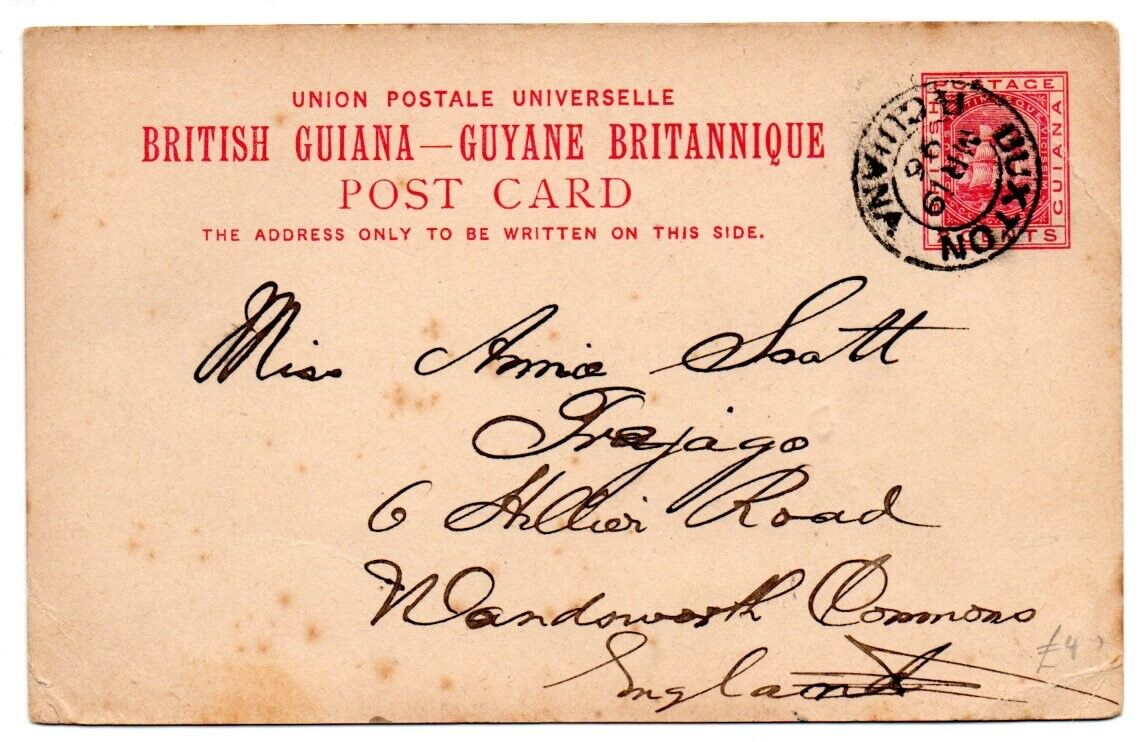 UNION POSTALE UNIVERSELLE
BRITISH GUIANA—GUYANE BRITANNIQUE
POST CARD
THE ADDRESS ONLY TO BE WRITTEN ON THIS SIDE.
POSTAGE
GUIANA
BUXTON
MR 19
96
B. GUIANA
Miss Annie Scott
Trajago
6 Hillier Road
Wandsworth Commons
England
£4